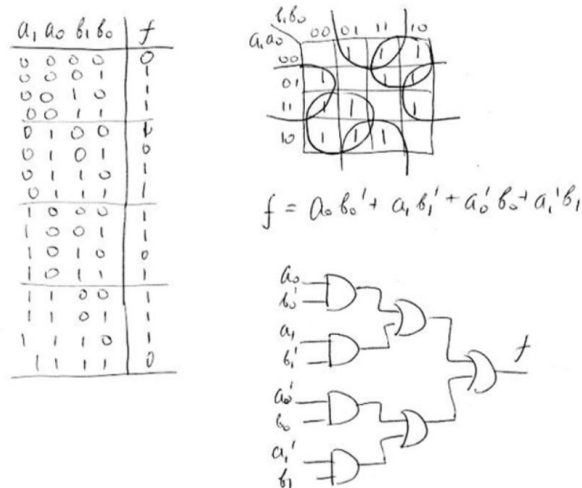 a₁ a₀ b₁ b₀ f
0 0 0 0 0
0 0 0 1 1
0 0 1 0 1
0 0 1 1 1
0 1 0 0 1
0 1 0 1 0
0 1 1 0 1
0 1 1 1 1
1 0 0 0 1
1 0 0 1 1
1 0 1 0 0
1 0 1 1 1
1 1 0 0 1
1 1 0 1 1
1 1 1 0 1
1 1 1 1 0
b₁b₀
a₁a₀ 00 01 11 10
00 1 1 1
01 1 1 1
11 1 1 1
10 1 1 1
f = a₀b₀' + a₁b₁' + a₀'b₀ + a₁'b₁
a₀
b₀'
a₁
b₁'
f
a₀'
b₀
a₁'
b₁